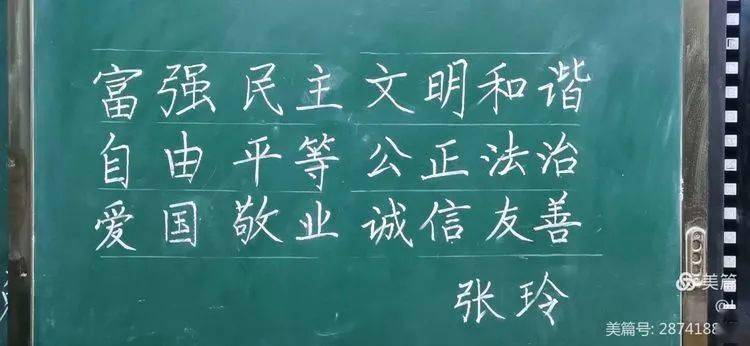 富强民主文明和谐
自由平等公正法治
爱国敬业诚信友善
张玲
美篇
美篇号: 2874188